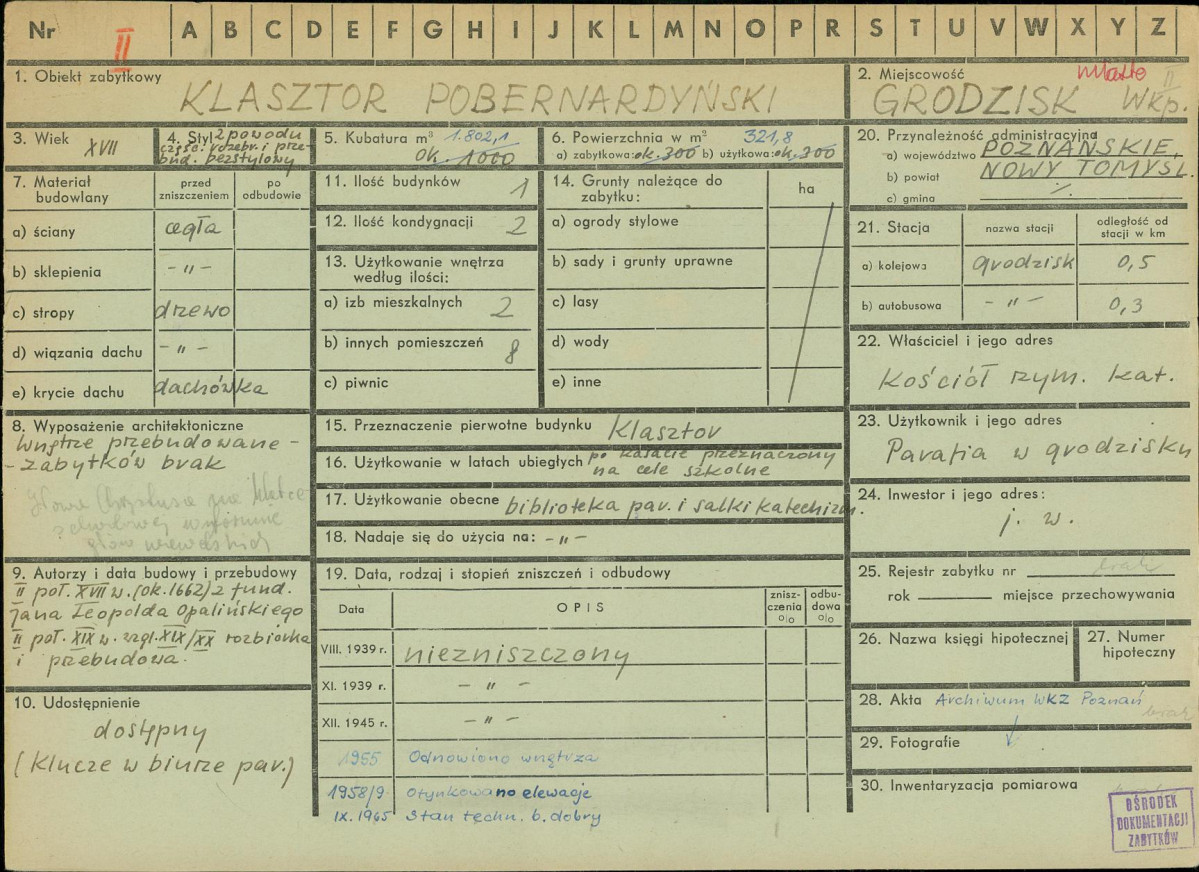 Nr II A B C D E F G H I J K L M N O P R S T U V W X Y Z
1. Obiekt zabytkowy
KLASZTOR POBERNARDYŃSKI
2. Miejscowość miasto II
GRODZISK Wkp.
3. Wiek XVII
4. Styl z powodu
częśc. rozebr. i prze-
bud. bezstylowy
5. Kubatura m³ 1.802,1
ok. 1000
6. Powierzchnia w m² 321,8
a) zabytkowa: ok. 300 b) użytkowa: ok. 300
20. Przynależność administracyjna
a) województwo POZNAŃSKIE,
b) powiat NOWY TOMYŚL.
c) gmina ./.
7. Materiał budowlany
przed zniszczeniem
po odbudowie
a) ściany cegła
b) sklepienia - " -
c) stropy drzewo
d) wiązania dachu - " -
e) krycie dachu dachówka
11. Ilość budynków 1
12. Ilość kondygnacji 2
13. Użytkowanie wnętrza
według ilości:
a) izb mieszkalnych 2
b) innych pomieszczeń 8
c) piwnic
14. Grunty należące do
zabytku:
ha
a) ogrody stylowe
b) sady i grunty uprawne
c) lasy
d) wody
e) inne
21. Stacja
nazwa stacji
odległość od
stacji w km
a) kolejowa Grodzisk 0,5
b) autobusowa - " - 0,3
22. Właściciel i jego adres
Kościół rzym. kat.
8. Wyposażenie architektoniczne
Wnętrze przebudowane -
- zabytków brak
Głowa Chrystusa na klatce
schodowej
15. Przeznaczenie pierwotne budynku Klasztor
16. Użytkowanie w latach ubiegłych po kasacie przeznaczony
na cele szkolne
17. Użytkowanie obecne biblioteka par. i salki katechizm.
18. Nadaje się do użycia na: - " -
23. Użytkownik i jego adres
Parafia w Grodzisku
24. Inwestor i jego adres:
j. w.
9. Autorzy i data budowy i przebudowy
II poł. XVII w. (ok. 1662) z fund.
Jana Leopolda Opalińskiego
II poł. XIX w. wzgl. XIX/XX rozbiórka
i przebudowa.
10. Udostępnienie
dostępny
(Klucze w biurze par.)
19. Data, rodzaj i stopień zniszczeń i odbudowy
Data
OPIS
znisz-
czenia
%
odbu-
dowa
%
VIII. 1939 r. niezniszczony
XI. 1939 r. - " -
XII. 1945 r. - " -
1955 Odnowiono wnętrza
1958/9 Otynkowano elewacje
IX. 1965 Stan techn. b. dobry
25. Rejestr zabytku nr brak
rok miejsce przechowywania
26. Nazwa księgi hipotecznej
27. Numer
hipoteczny
28. Akta Archiwum WKZ Poznań
brak
29. Fotografie
30. Inwentaryzacja pomiarowa
OŚRODEK
DOKUMENTACJI
ZABYTKÓW